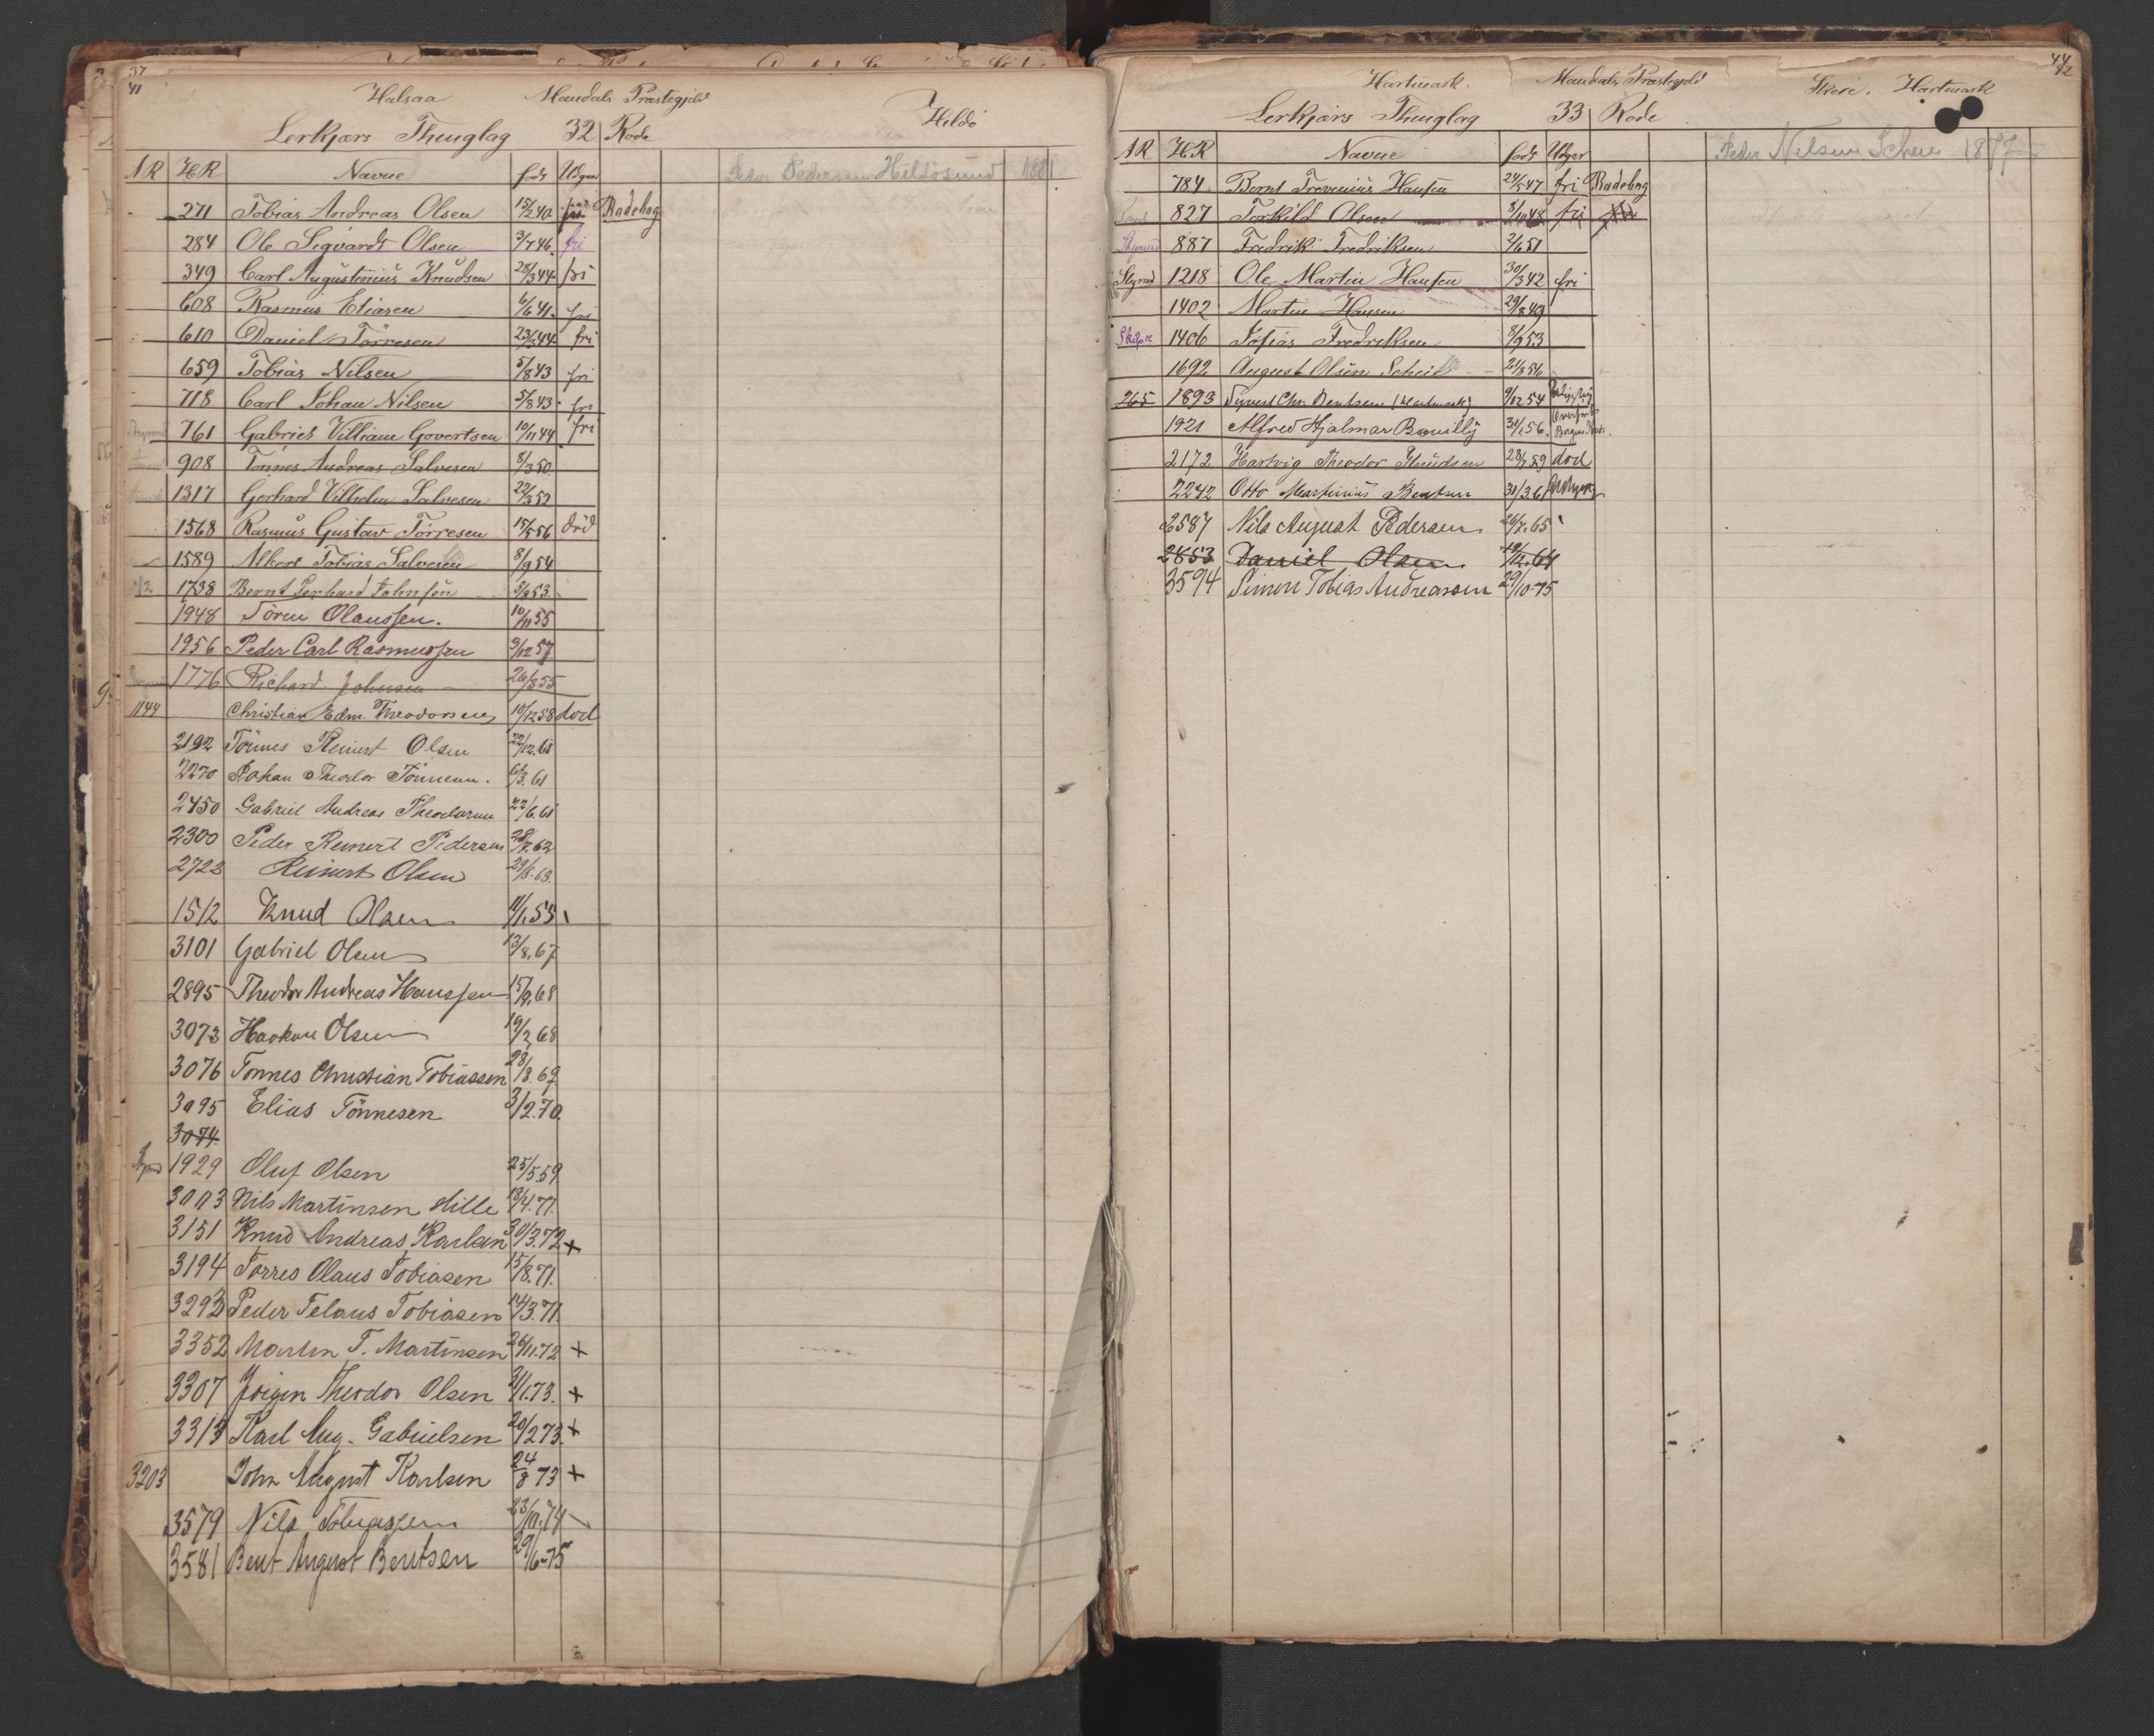 37
41
Halsaa Mandals Præstegjeld
Hildö
Lerkjærs Thinglag 32 Rode
AR HR Navne født Udgaar
Peder Pedersen Hildösund 1881
271 Tobias Andreas Olsen 15/2 40 fri Rodebog
284 Ole Sigvardt Olsen 3/7 46 fri
349 Carl Augustinius Knudsen 28/3 44 fri
608 Rasmus Eliasen 6/6 41 fri
610 Daniel Törresen 23/3 44 fri
659 Tobias Nilsen 5/8 43 fri
718 Carl Johan Nilsen 5/8 43 fri
761 Gabriel Villiam Govertsen 10/11 44 fri
908 Tönnes Andreas Salvesen 8/3 50
1317 Gerhard Vilhelm Salvesen 22/3 52
1568 Rasmus Gustav Törresen 15/5 56 död
1589 Albert Tobias Salvesen 8/9 54
1738 Bernt Gerhard Johnsen 5/8 53
1948 Sören Olaussen. 10/11 55
1956 Peder Carl Rasmussen 9/12 57
1776 Richard Johnsen 26/3 55
1144 Christian Edm. Theodorsen 10/12 58 död
2192 Tönnes Reinert Olsen 22/12.61
2270 Johan Theodor Tönnesen. 6/3.61
2450 Gabriel Andreas Theodorsen 22/6.61
2300 Peder Reinert Pedersen 28/7.62
2723 Reinert Olsen 29/8.63.
1512 Knud Olsen 11/1.55
3101 Gabriel Olsen 13/8.67
2895 Theodor Andreas Hanssen 15/9.68
3073 Haakon Olsen 19/2 68
3076 Tönnes Christian Tobiassen 28/8.69
3095 Elias Tönnesen 3/2.70.
3074.
1929 Oluf Olsen 25/5.59
3003 Nils Martinsen Hille 18/4.71.
3151 Knud Andreas Karlsen 30/3.72 +
3194 Torres Olaus Tobiasen 15/8.71.
3293 Peder Telaus Tobiasen 14/3.71.
3352 Martin T. Martinsen 26/11.72 +
3307 Jörgen Theodor Olsen 21/1.73. +
3313 Karl Aug. Gabrielsen 20/2 73. +
3203 John August Karlsen 24/8 73 +
3579 Nils Tobiassen 23/10.74
3581 Bent August Bentsen 29/6-75
44
42
Hartmark. Mandals Præstegjeld
Skeie. Hartmark
Lerkjærs Thinglag 33 Rode
AR HR Navne født Udgaar
Peder Nilsen Scheie 1877
784 Bernt Trevenius Hansen 24/5 47 fri Rodebog
827 Torkild Olsen 8/10 48 fri
887 Fredrik Fredriksen 2/6 51
Styrmd 1218 Ole Martin Hansen 30/3 42 fri
1402 Martin Hansen 29/8 49
Skipper 1406 Tosias Fredriksen 8/9 53
1692 August Olsen Scheie 21/8 56
265 1893 Syvert Chr. Bentsen (Hartmark) 9/12 54
1921 Alfred Hjalmar Bouilly 31/1 56.
2172 Hartvig Theodor Knudsen 28/7 59 död
2242 Otto Martinius Bentsen 31/3 61
2587 Nils August Pedersen 26/7.65
2853 Daniel Olsen 19/12.64
3594 Simon Tobias Andreassen 29/10-75